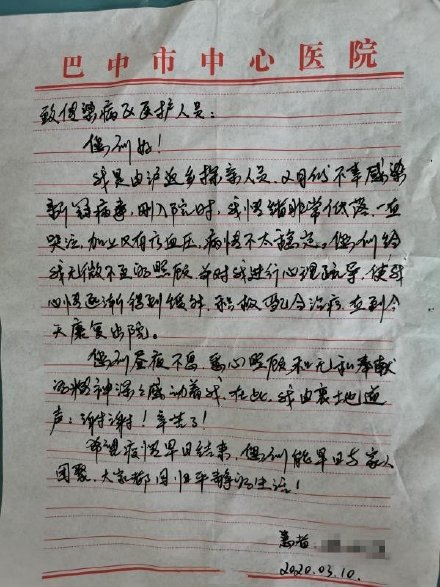 巴中市中心医院
致传染病区医护人员：
您们好！
我是由沪返乡探亲人员，2月份不幸感染
新冠病毒，刚入院时，我情绪非常低落，一直
哭泣，加上又有高血压，病情不太稳定。您们给
我无微不至的照顾，并对我进行心理疏导，使我
心情逐渐得到缓解，积极配合治疗，直到今
天康复出院。
您们昼夜不息，悉心照顾和无私奉献
的精神深深感动着我，在此，我由衷地道
声：谢谢！辛苦了！
希望疫情早日结束，您们能早日与家人
团聚，大家都回归平静的生活！
患者：
2020.03.10.